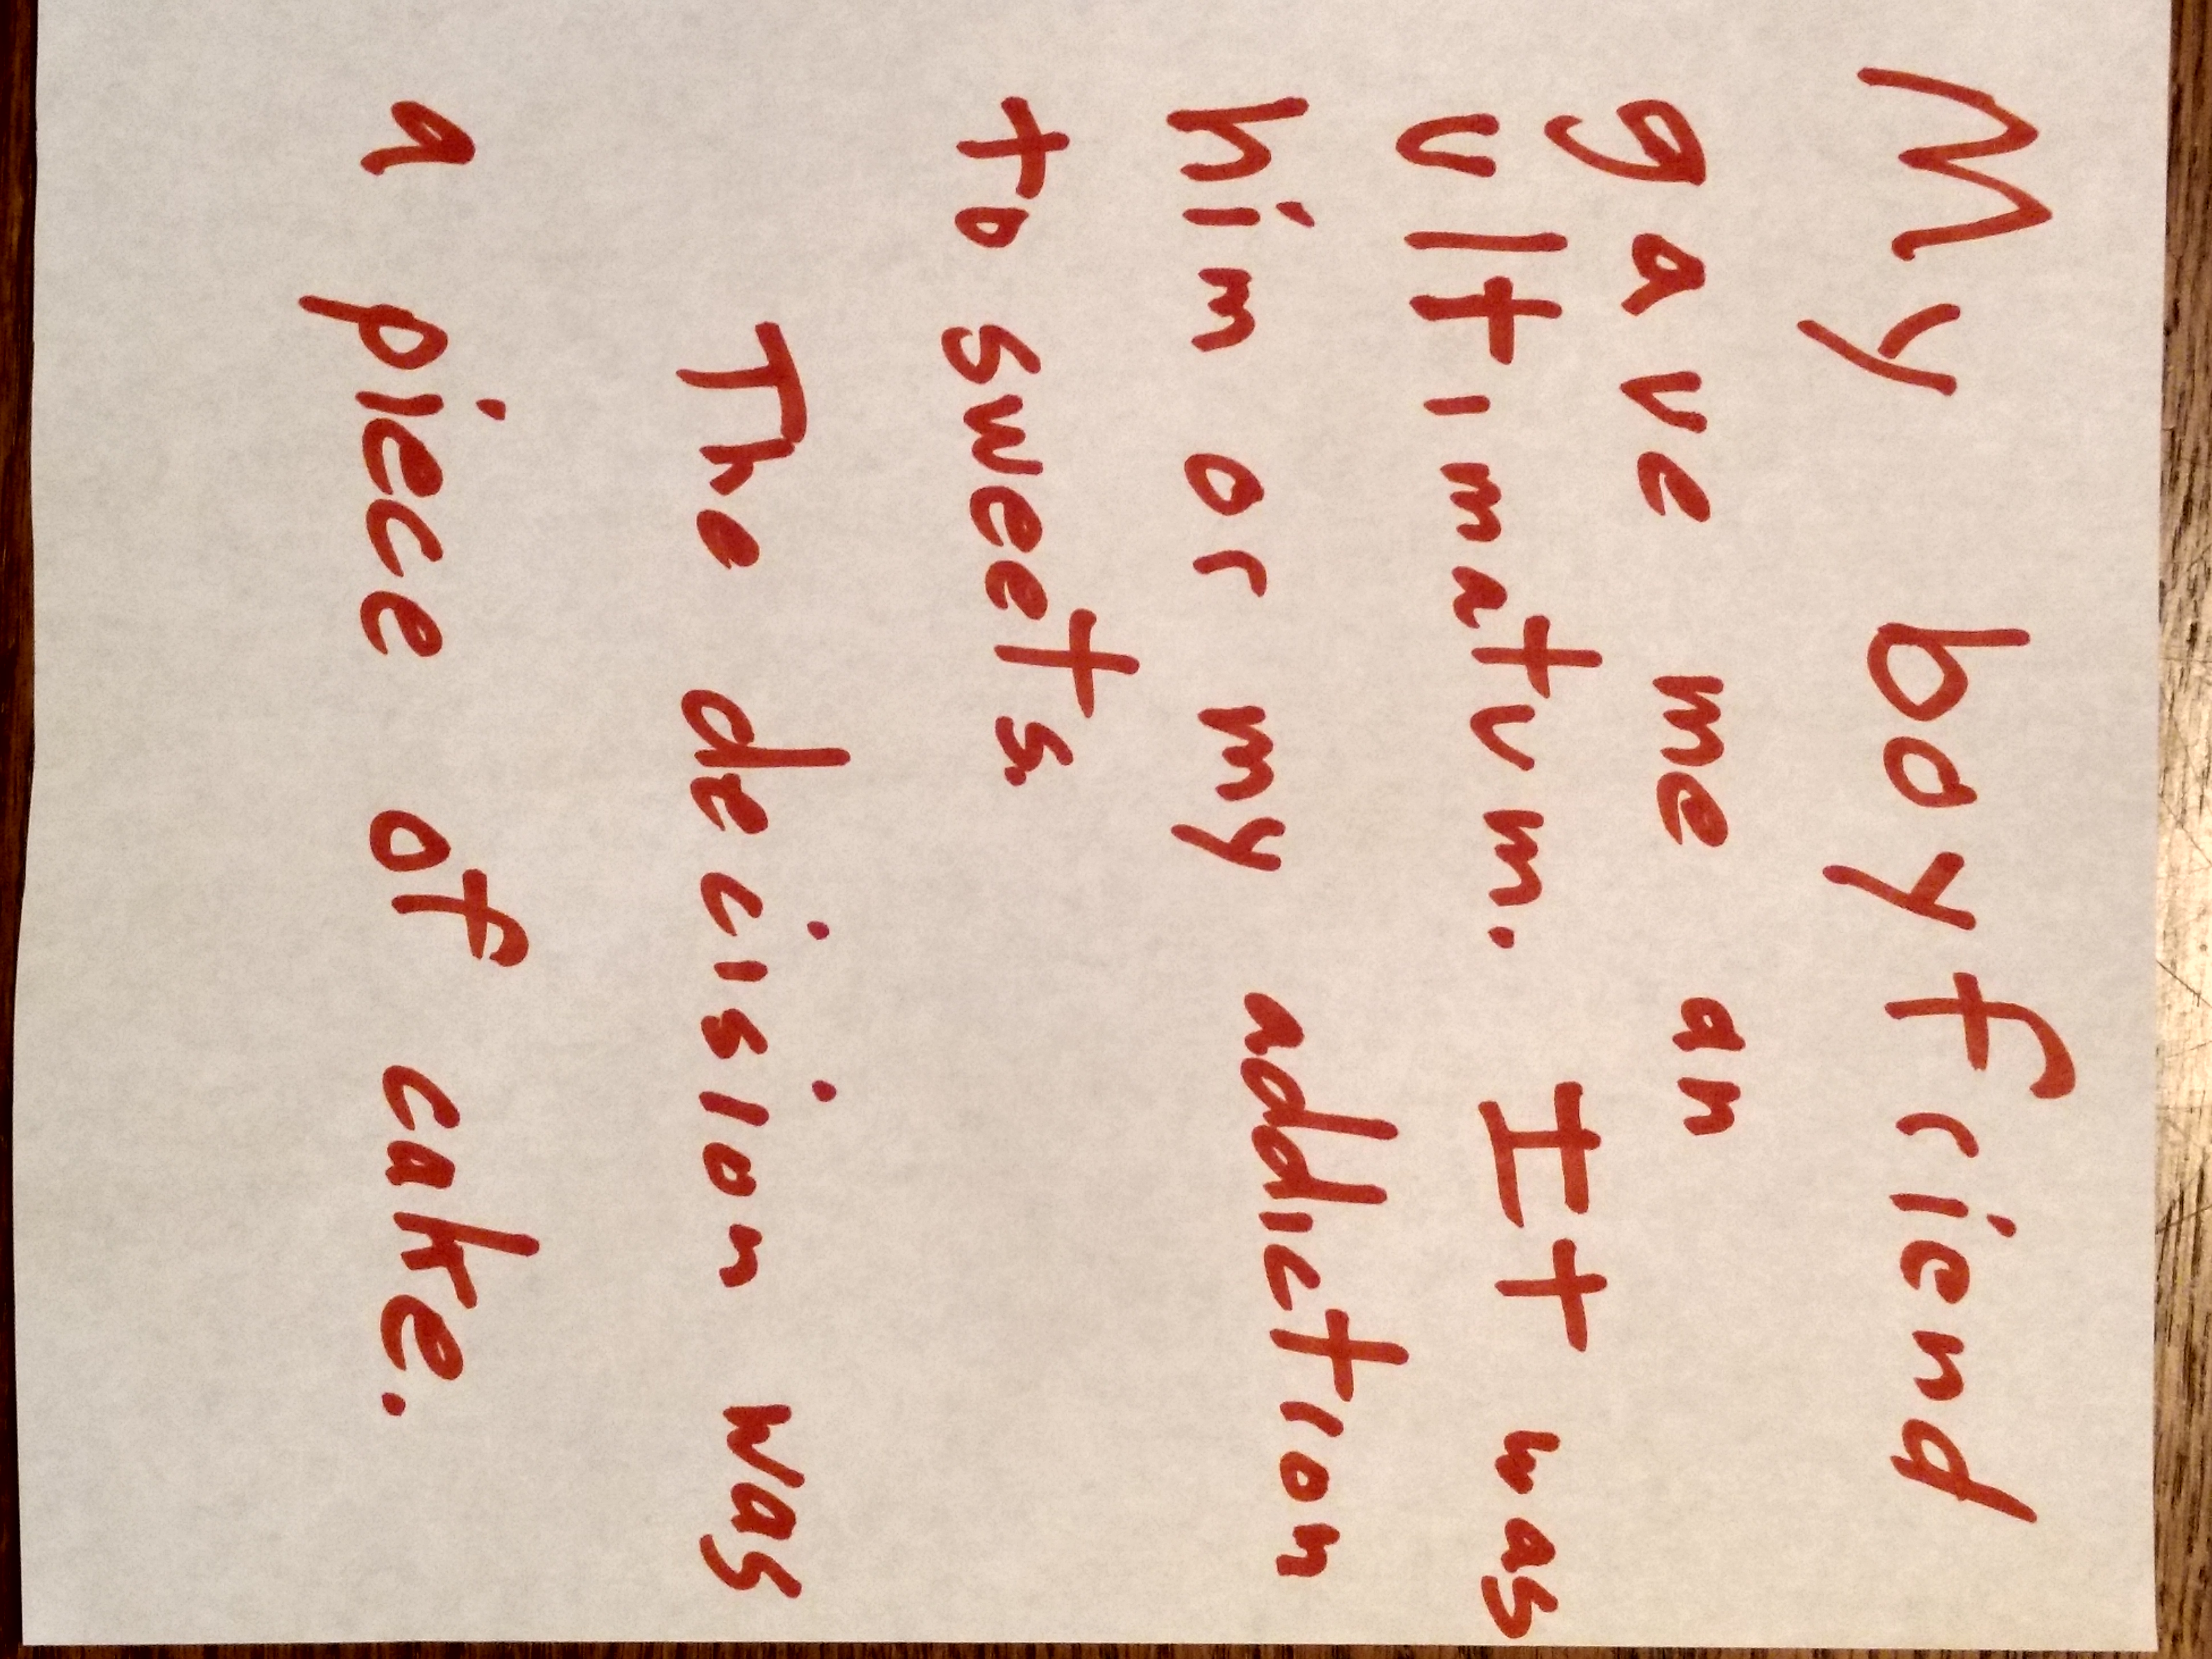 My boyfriend
gave me an
ultimatum. It was
him or my addiction
to sweets.
The decision was
a piece of cake.